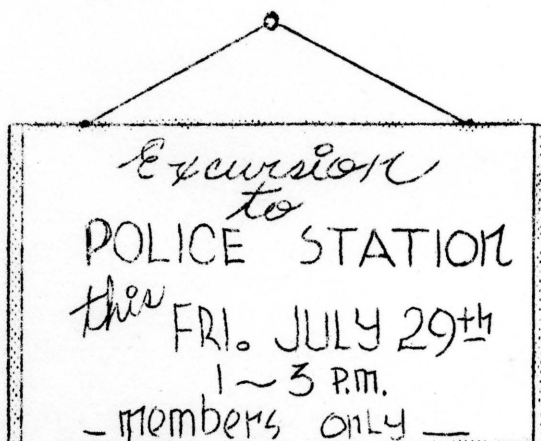 Excursion
to
POLICE STATION
this FRI. JULY 29th
1 ~ 3 P.M.
- members only -